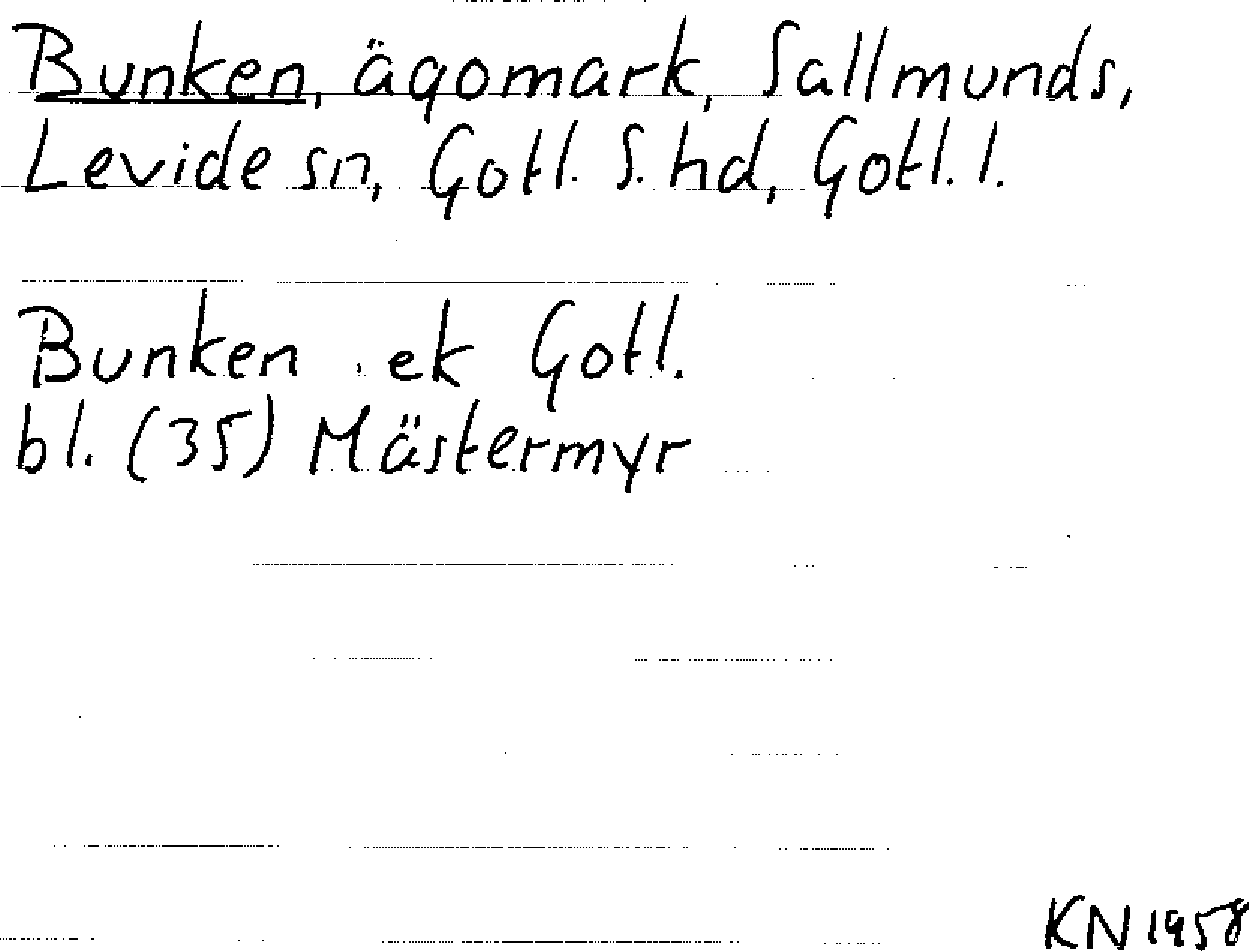 Bunken, ägomark, Sallmunds,
Levide sn, Gotl. S. hd, Gotl. l.
Bunken . ek Gotl.
bl. (35) Mästermyr
KN 1958